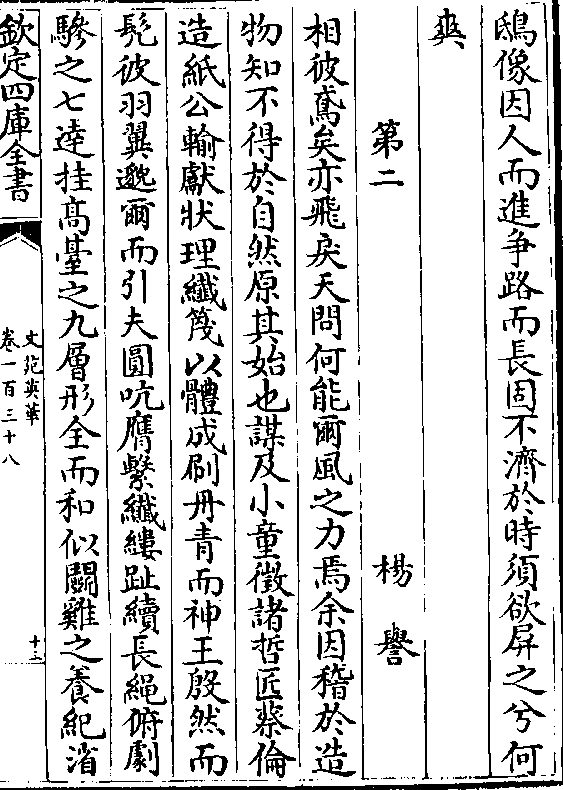 鴟像因人而進争路而長固不濟於時須欲屏之兮何
爽
第二 楊譽
相彼鳶矣亦飛戾天問何能爾風之力焉余因稽於造
物知不得於自然原其始也謀及小童徴諸哲匠蔡倫
造紙公輸獻狀理纎篾以體成刷丹青而神王殷然而
髠彼羽翼邈爾而引夫圓吭膺繫纎縷趾續長繩俯劇
驂之七逹挂髙臺之九層形全而和似鬭雞之養紀渻
欽定四庫全書
文苑英華
卷一百三十八
十三